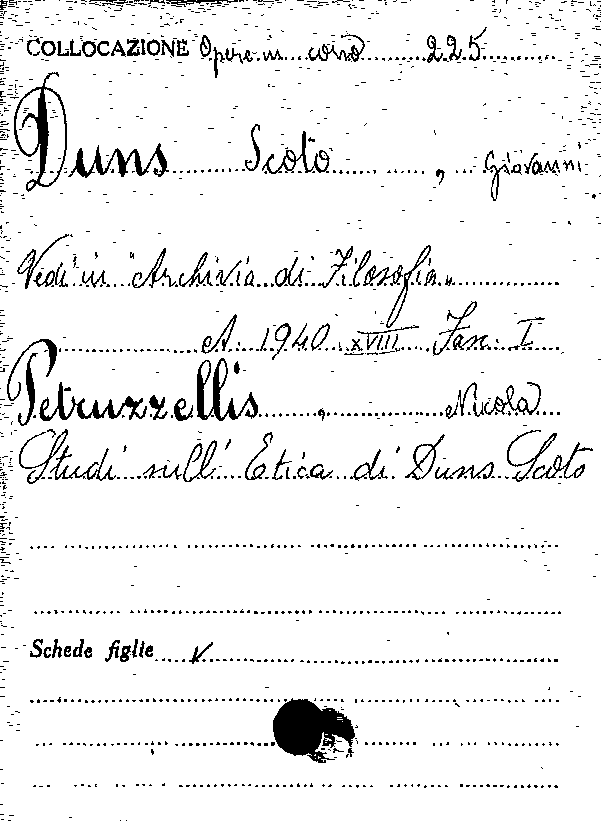 COLLOCAZIONE Opere in corso 225
Duns Scoto, Giovanni
Vedi in "Archivia di Filosofia"
A. 1940 XVIII Fasc. I
Petruzzellis, Nicola
Studi sull'Etica di Duns Scoto
Schede figlie ✓